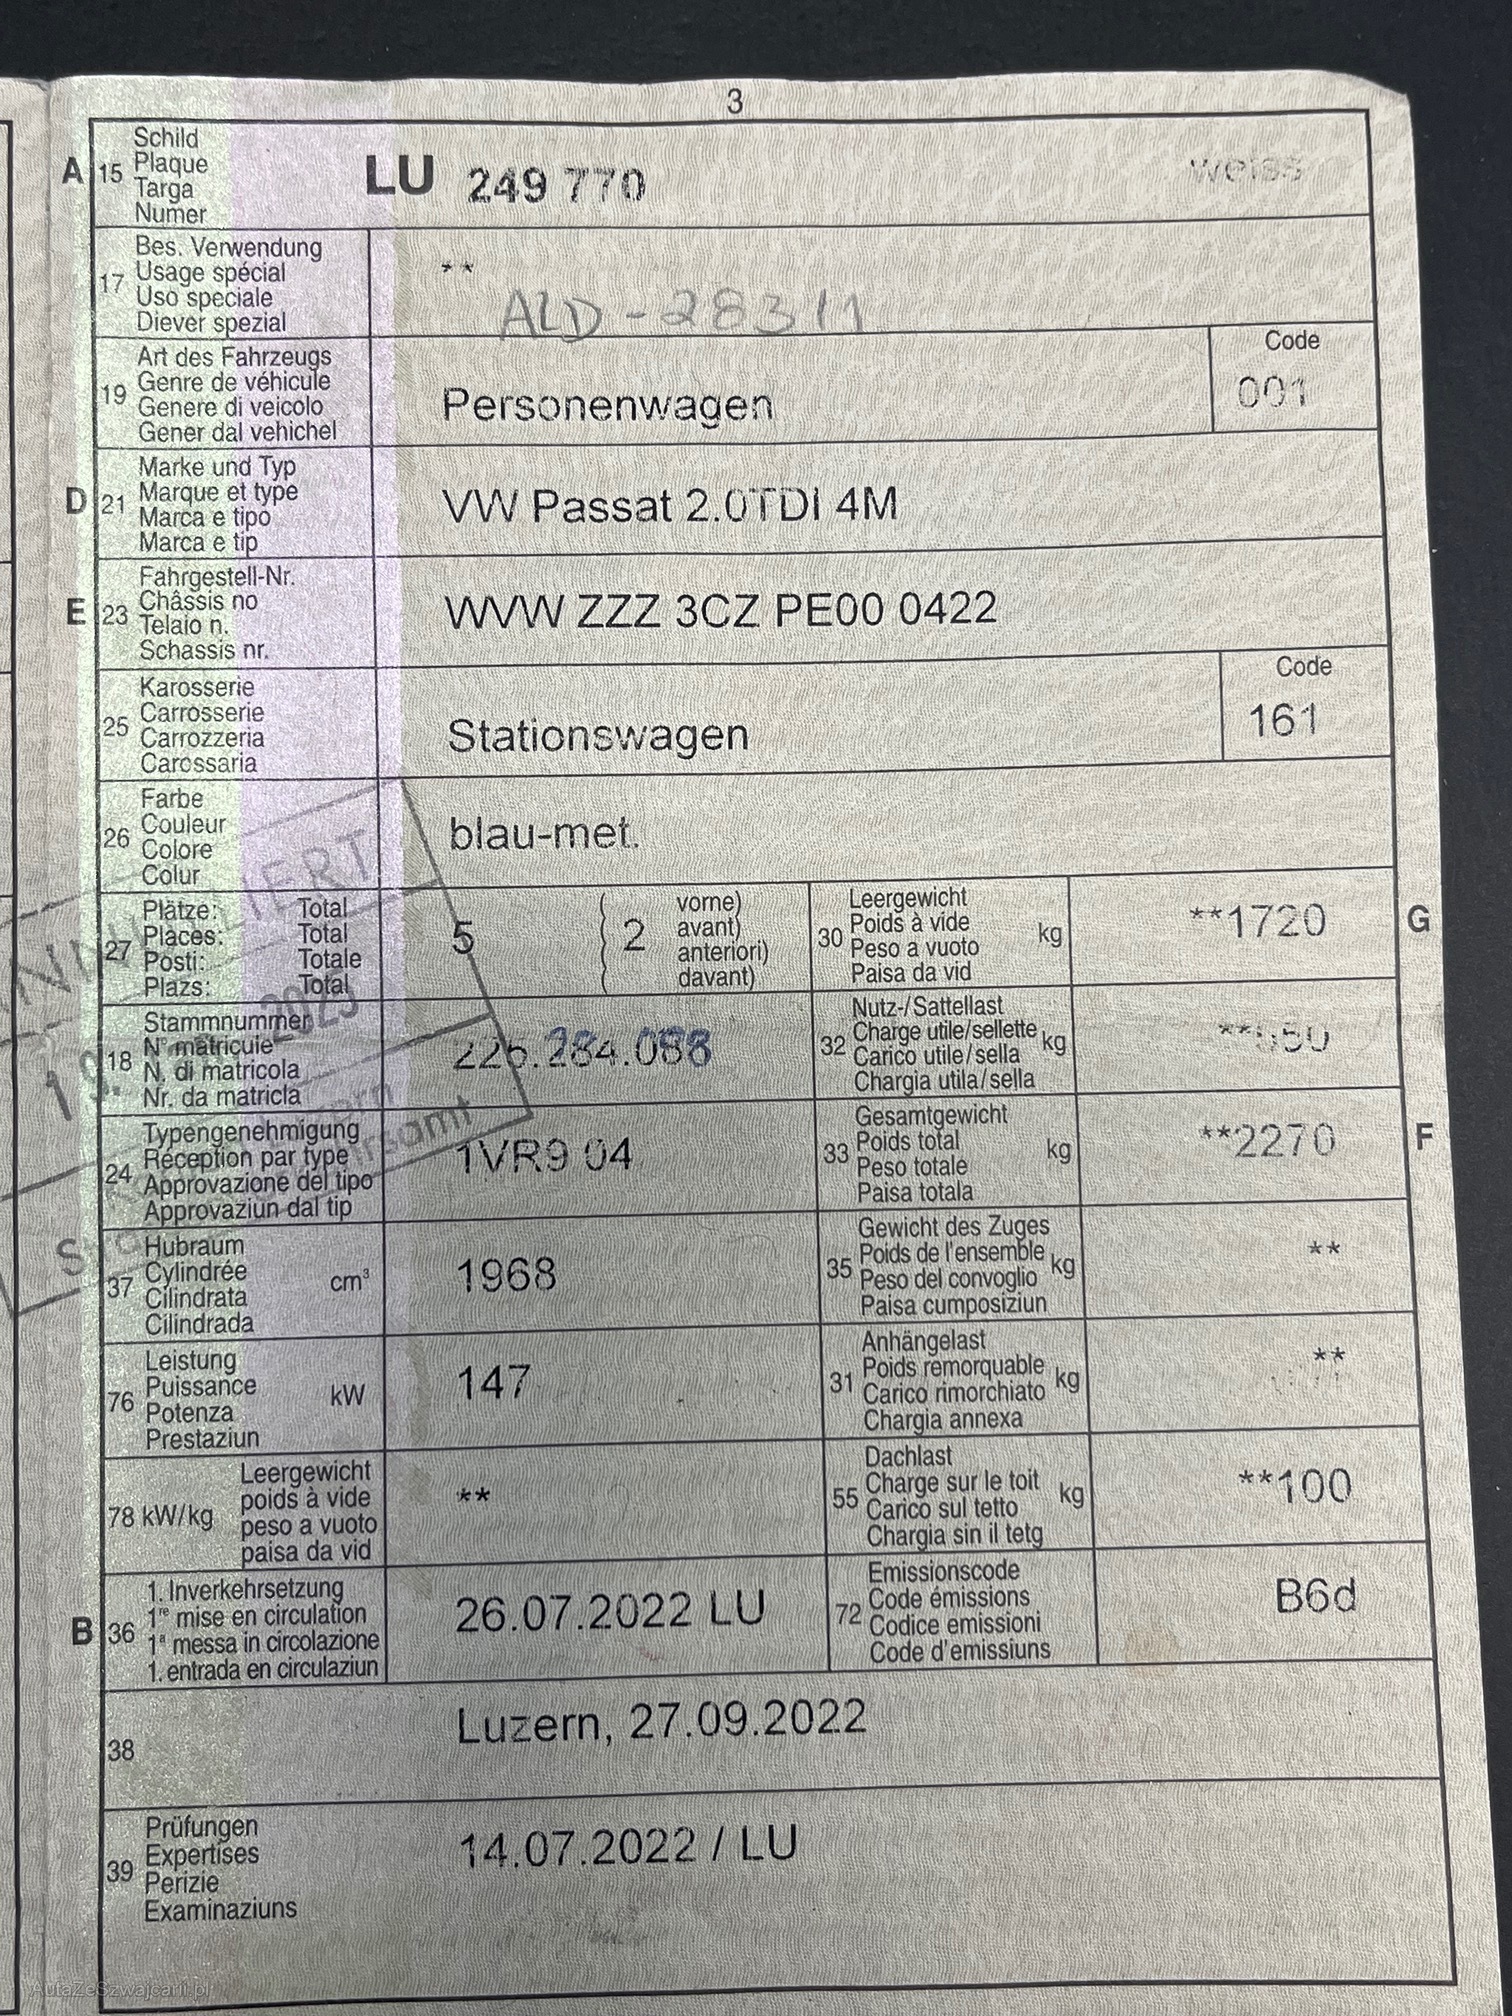 3
A 15 Schild
Plaque
Targa
Numer
LU 249 770 weiss
17 Bes. Verwendung
Usage spécial
Uso speciale
Diever spezial
**
ALD-28311
19 Art des Fahrzeugs
Genre de véhicule
Genere di veicolo
Gener dal vehichel
Personenwagen
Code
001
D 21 Marke und Typ
Marque et type
Marca e tipo
Marca e tip
VW Passat 2.0TDI 4M
E 23 Fahrgestell-Nr.
Châssis no
Telaio n.
Schassis nr.
WVW ZZZ 3CZ PE00 0422
25 Karosserie
Carrosserie
Carrozzeria
Carossaria
Stationswagen
Code
161
26 Farbe
Couleur
Colore
Colur
blau-met.
27 Plätze: Total
Places: Total
Posti: Totale
Plazs: Total
5
2
vorne)
avant)
anteriori)
davant)
30 Leergewicht
Poids à vide
Peso a vuoto
Paisa da vid
kg
**1720
G
18 Stammnummer
N° matricule
N. di matricola
Nr. da matricla
226.284.088
32 Nutz-/Sattellast
Charge utile/sellette
Carico utile/sella
Chargia utila/sella
kg
24 Typengenehmigung
Réception par type
Approvazione del tipo
Approvaziun dal tip
1VR9 04
33 Gesamtgewicht
Poids total
Peso totale
Paisa totala
kg
**2270
F
37 Hubraum
Cylindrée
Cilindrata
Cilindrada
cm³
1968
35 Gewicht des Zuges
Poids de l'ensemble
Peso del convoglio
Paisa cumposiziun
kg
**
76 Leistung
Puissance
Potenza
Prestaziun
kW
147
31 Anhängelast
Poids remorquable
Carico rimorchiato
Chargia annexa
kg
**
78 kW/kg
Leergewicht
poids à vide
peso a vuoto
paisa da vid
**
55 Dachlast
Charge sur le toit
Carico sul tetto
Chargia sin il tetg
kg
**100
B 36 1. Inverkehrsetzung
1re mise en circulation
1a messa in circolazione
1. entrada en circulaziun
26.07.2022 LU
72 Emissionscode
Code émissions
Codice emissioni
Code d'emissiuns
B6d
38
Luzern, 27.09.2022
39 Prüfungen
Expertises
Perizie
Examinaziuns
14.07.2022 / LU
AutaZeSzwajcarii.pl